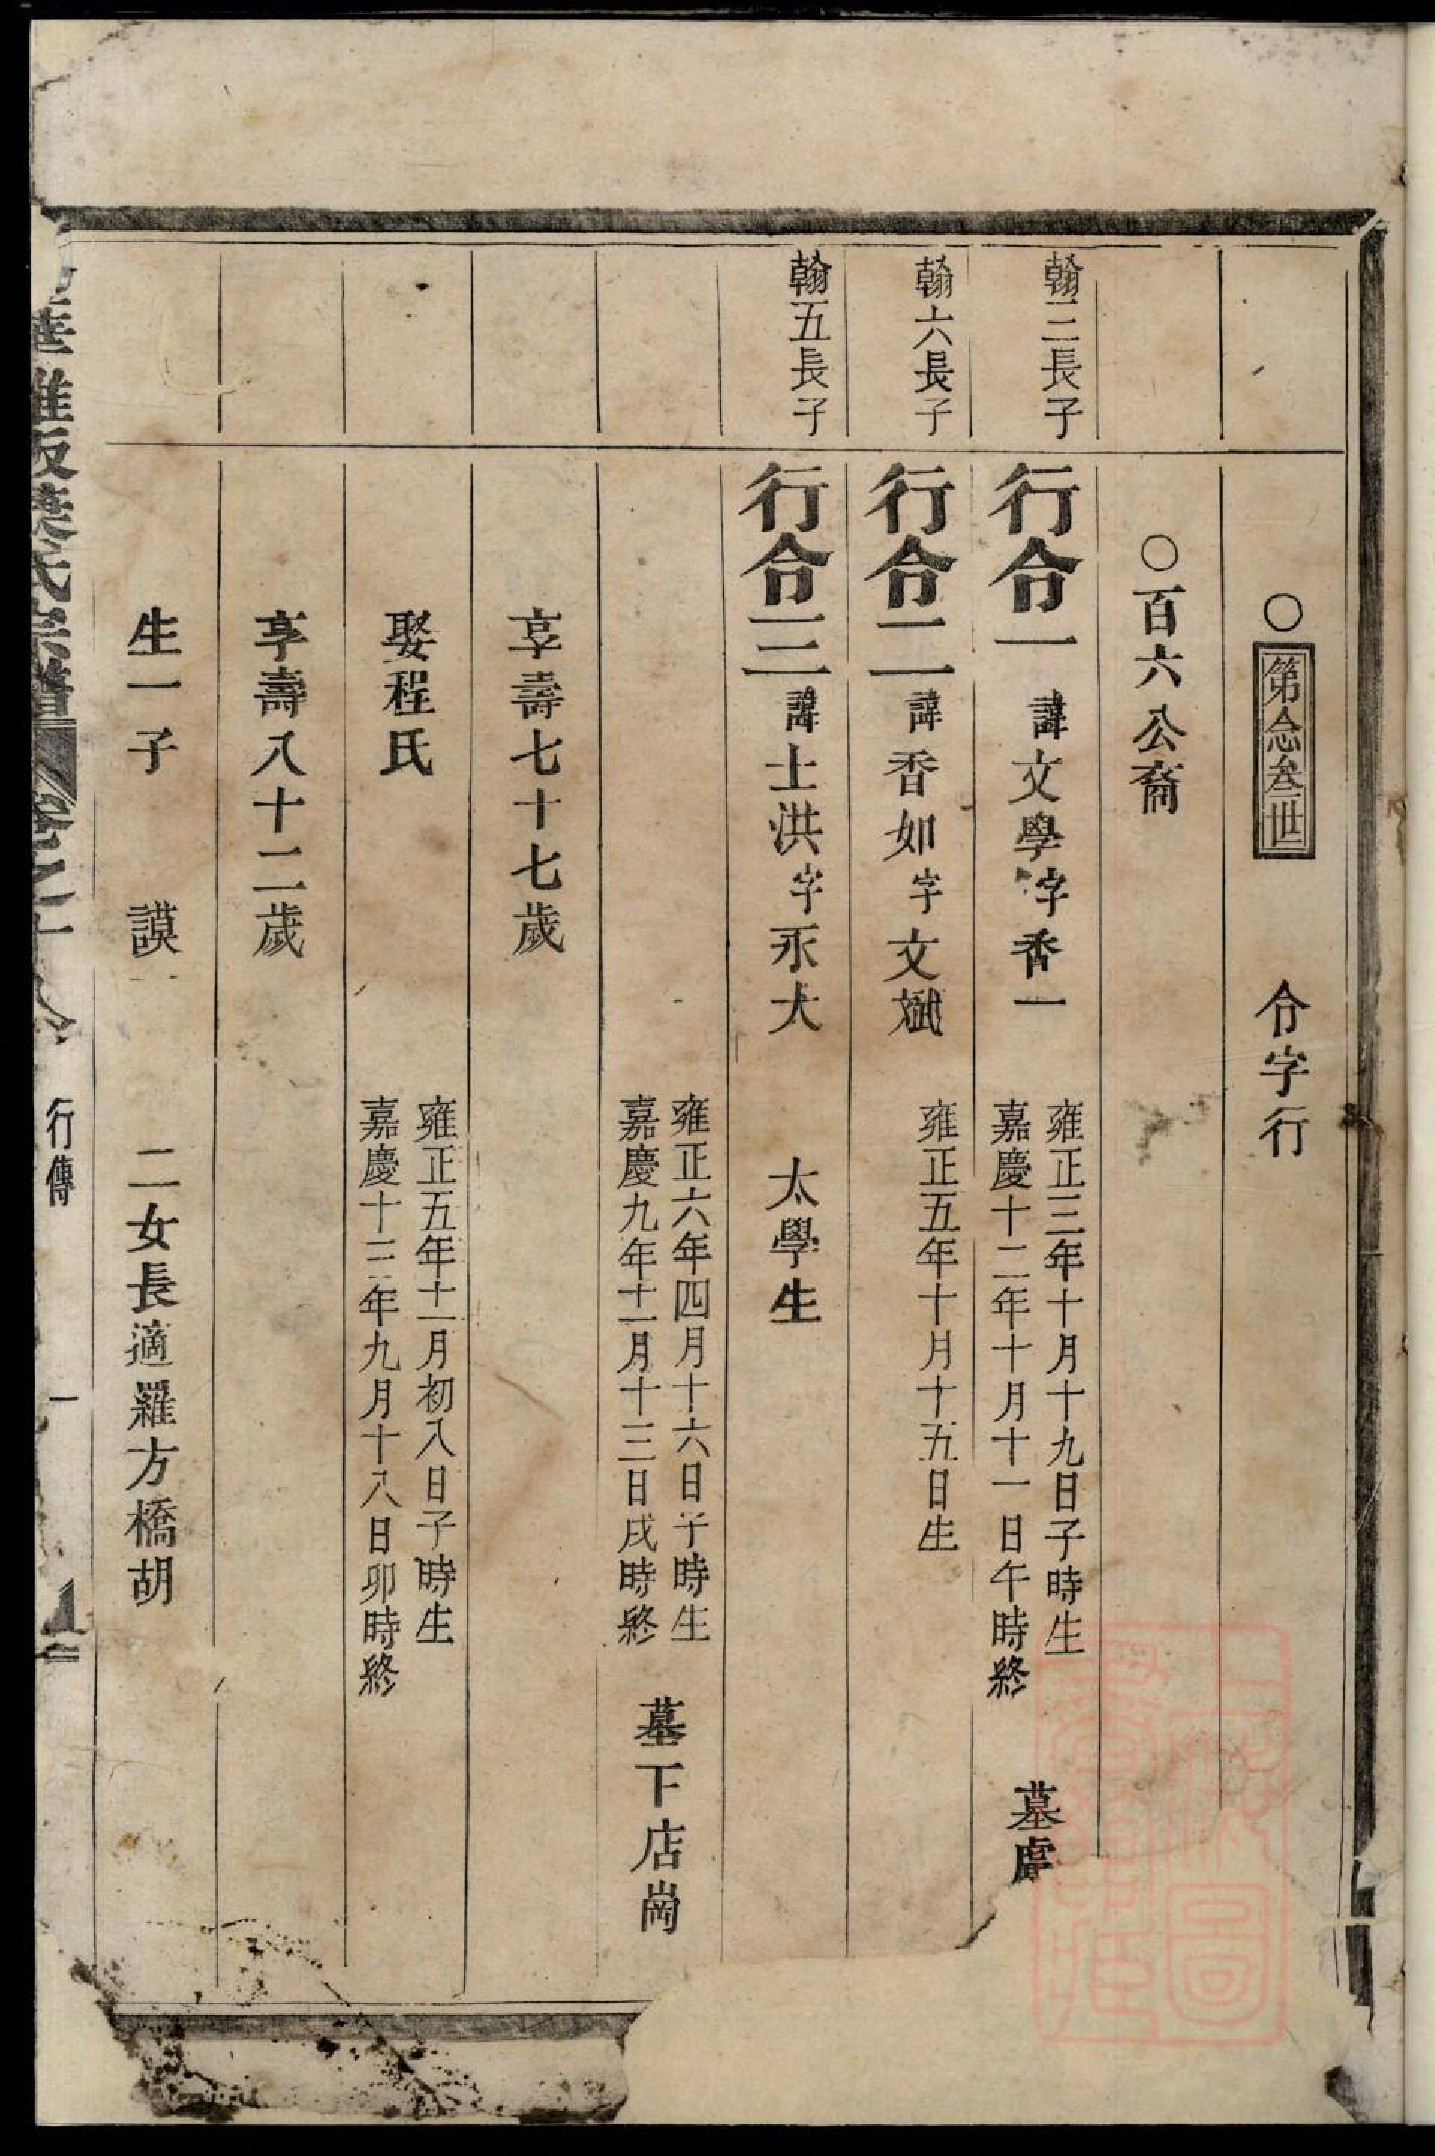 ○第念叁世 令字行
○百六公裔
翰三長子
行令一 諱文學字香一 雍正三年十月十九日子時生
嘉慶十二年十月十一日午時終 墓處
翰六長子
行令二 諱香如字文斌 雍正五年十月十五日生
翰五長子
行令三 諱士洪字永大 太學生
雍正六年四月十六日子時生
嘉慶九年十一月十三日戌時終 墓下店崗
享壽七十七歲
娶程氏 雍正五年十一月初八日子時生
嘉慶十三年九月十八日卯時終
享壽八十二歲
生一子 謨一 二女長適羅方橋胡
華雅坂葉氏宗譜 卷之十八 行傳 一